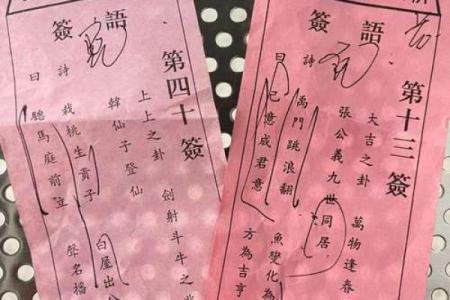 籤語
第十三籤
大吉之卦 萬物逢春
張公義九世同居
曰
禹門跳浪翻 魚變化為
已意成君意 方為吉亨
籤語
第四十籤
上上之卦 劍射斗牛之
韓仙子登仙
詩
曰
栽桃生貴子 白屋出
聰馬庭前立 聲名播